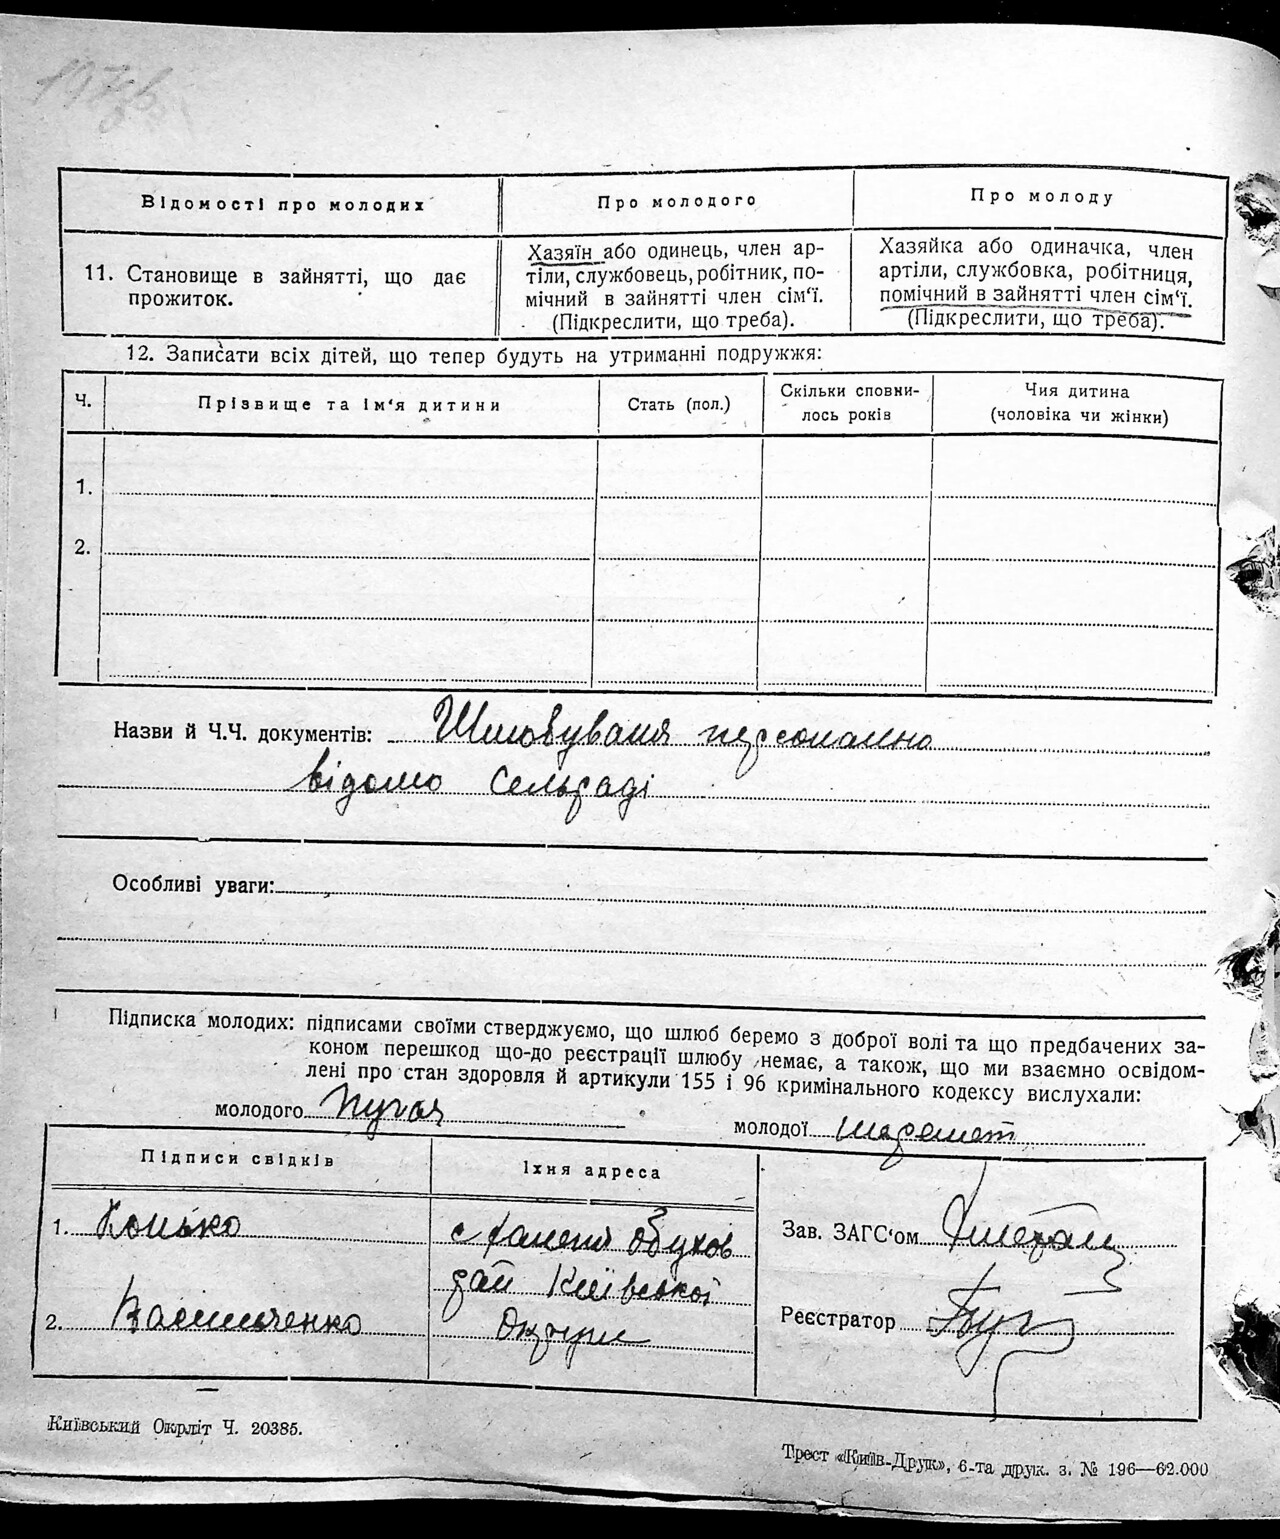 Відомості про молодих
Про молодого
Про молоду
11. Становище в зайнятті, що дає
прожиток.
Хазяїн або одинець, член ар-
тілі, службовець, робітник, по-
мічний в зайнятті член сім'ї.
(Підкреслити, що треба).
Хазяйка або одиначка, член
артіли, службовка, робітниця,
помічний в зайнятті член сім'ї.
(Підкреслити, що треба).
12. Записати всіх дітей, що тепер будуть на утриманні подружжя:
Ч.
Прізвище та ім'я дитини
Стать (пол.)
Скільки сповни-
лось років
Чия дитина
(чоловіка чи жінки)
1.
2.
Назви й Ч.Ч. документів: персонално
відомо Сельраді
Особливі уваги:
Підписка молодих: підписами своїми стверджуємо, що шлюб беремо з доброї волі та що предбачених за-
коном перешкод що-до реєстрації шлюбу немає, а також, що ми взаємно освідом-
лені про стан здоровля й артикули 155 і 96 кримінального кодексу вислухали:
молодого Пугач
молодої Шеремет
Підписи свідків
Їхня адреса
1. Конько
с Халепя Обухов
рай Київської
2. Василиченко
Округи
Зав. ЗАГС'ом
Реєстратор
Київський Окрліт Ч. 20385.
Трест «Київ-Друк», 6-та друк. з. № 196—62.000